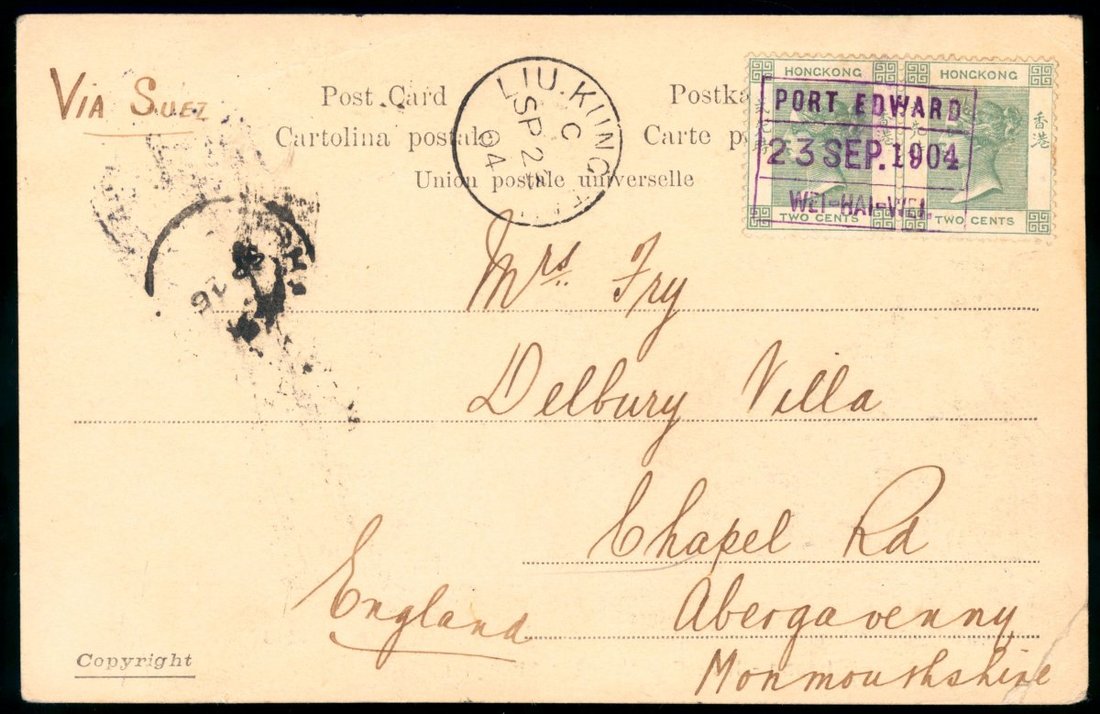 Via Suez
Post Card
Postka
Cartolina postale
Carte p
Union postale universelle
LIU.KUNG
C
SP 2
04
HONGKONG
HONGKONG
香港
TWO CENTS
TWO CENTS
PORT EDWARD
23 SEP. 1904
WEI-HAI-WEI.
26
Mrs Fry
Delbury Villa
Chapel Rd
England
Abergavenny
Monmouthshire
Copyright